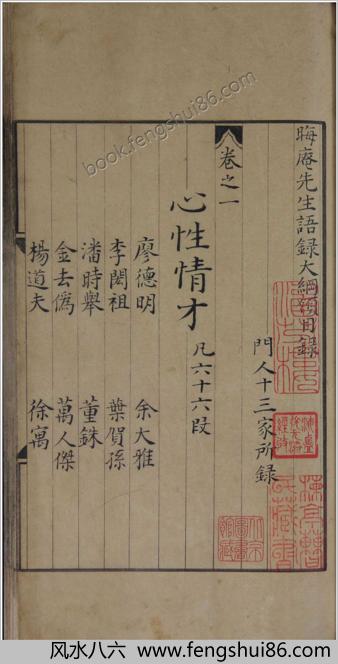 晦庵先生語録大綱領目録
門人十三家所録
卷之一
心性情才 凡六十六段
廖德明 余大雅
李閎祖 葉賀孫
潘時舉 董銖
金去僞 萬人傑
楊道夫 徐寓
book.fengshui86.com
风水八六 www.fengshui86.com